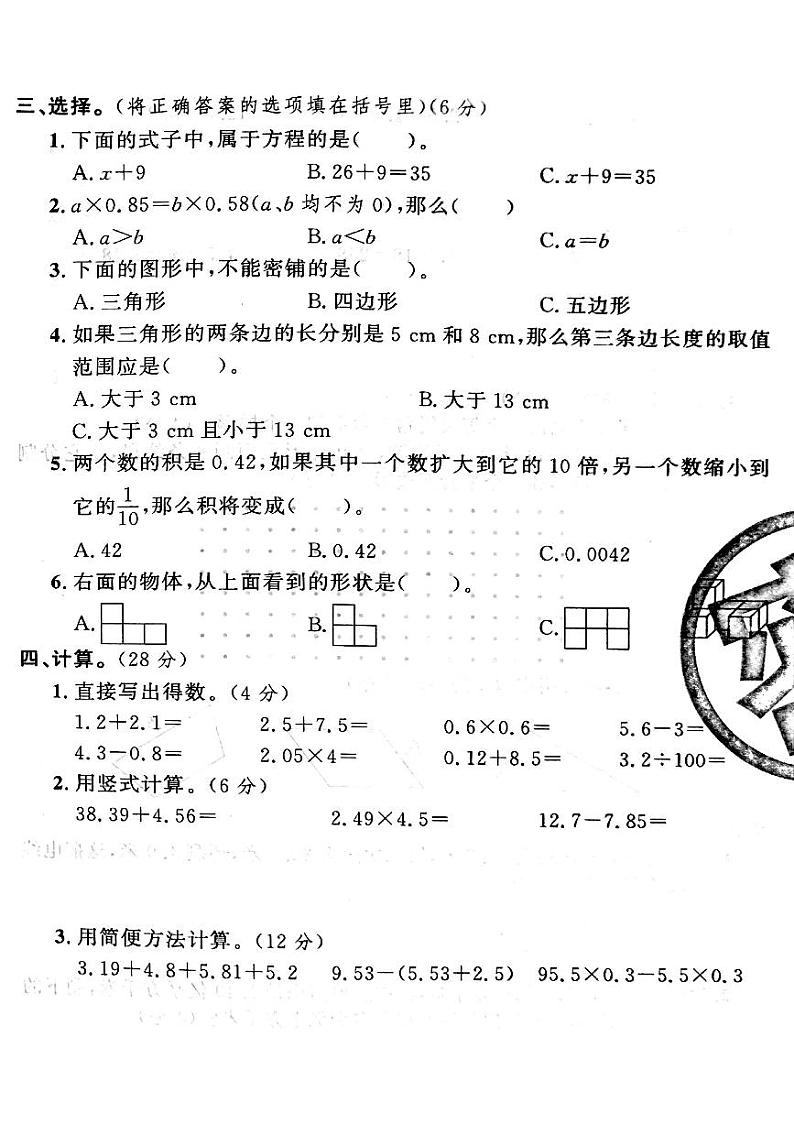 三、选择。(将正确答案的选项填在括号里)(6分)
1. 下面的式子中,属于方程的是(  )。
A. x+9  B. 26+9=35  C. x+9=35
2. a×0.85=b×0.58(a、b 均不为 0),那么(  )
A. a>b  B. a<b  C. a=b
3. 下面的图形中,不能密铺的是(  )。
A. 三角形  B. 四边形  C. 五边形
4. 如果三角形的两条边的长分别是 5 cm 和 8 cm,那么第三条边长度的取值
范围应是(  )。
A. 大于 3 cm  B. 大于 13 cm
C. 大于 3 cm 且小于 13 cm
5. 两个数的积是 0.42,如果其中一个数扩大到它的 10 倍,另一个数缩小到
它的1/10,那么积将变成(  )。
A. 42  B. 0.42  C. 0.0042
6. 右面的物体,从上面看到的形状是(  )。
A.  B.  C.
四、计算。(28 分)
1. 直接写出得数。(4 分)
1.2+2.1=  2.5+7.5=  0.6×0.6=  5.6-3=
4.3-0.8=  2.05×4=  0.12+8.5=  3.2÷100=
2. 用竖式计算。(6 分)
38.39+4.56=  2.49×4.5=  12.7-7.85=
3. 用简便方法计算。(12 分)
3.19+4.8+5.81+5.2  9.53-(5.53+2.5)  95.5×0.3-5.5×0.3